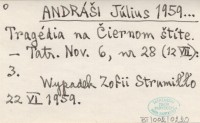 ANDRÁŠI Július 1959...
Tragédia na Čiernom štíte.
— Tatr. Nov. 6, nr 28 (12 VII):
3.
Wypadek Zofii Strumiłło
22 VI 1959.